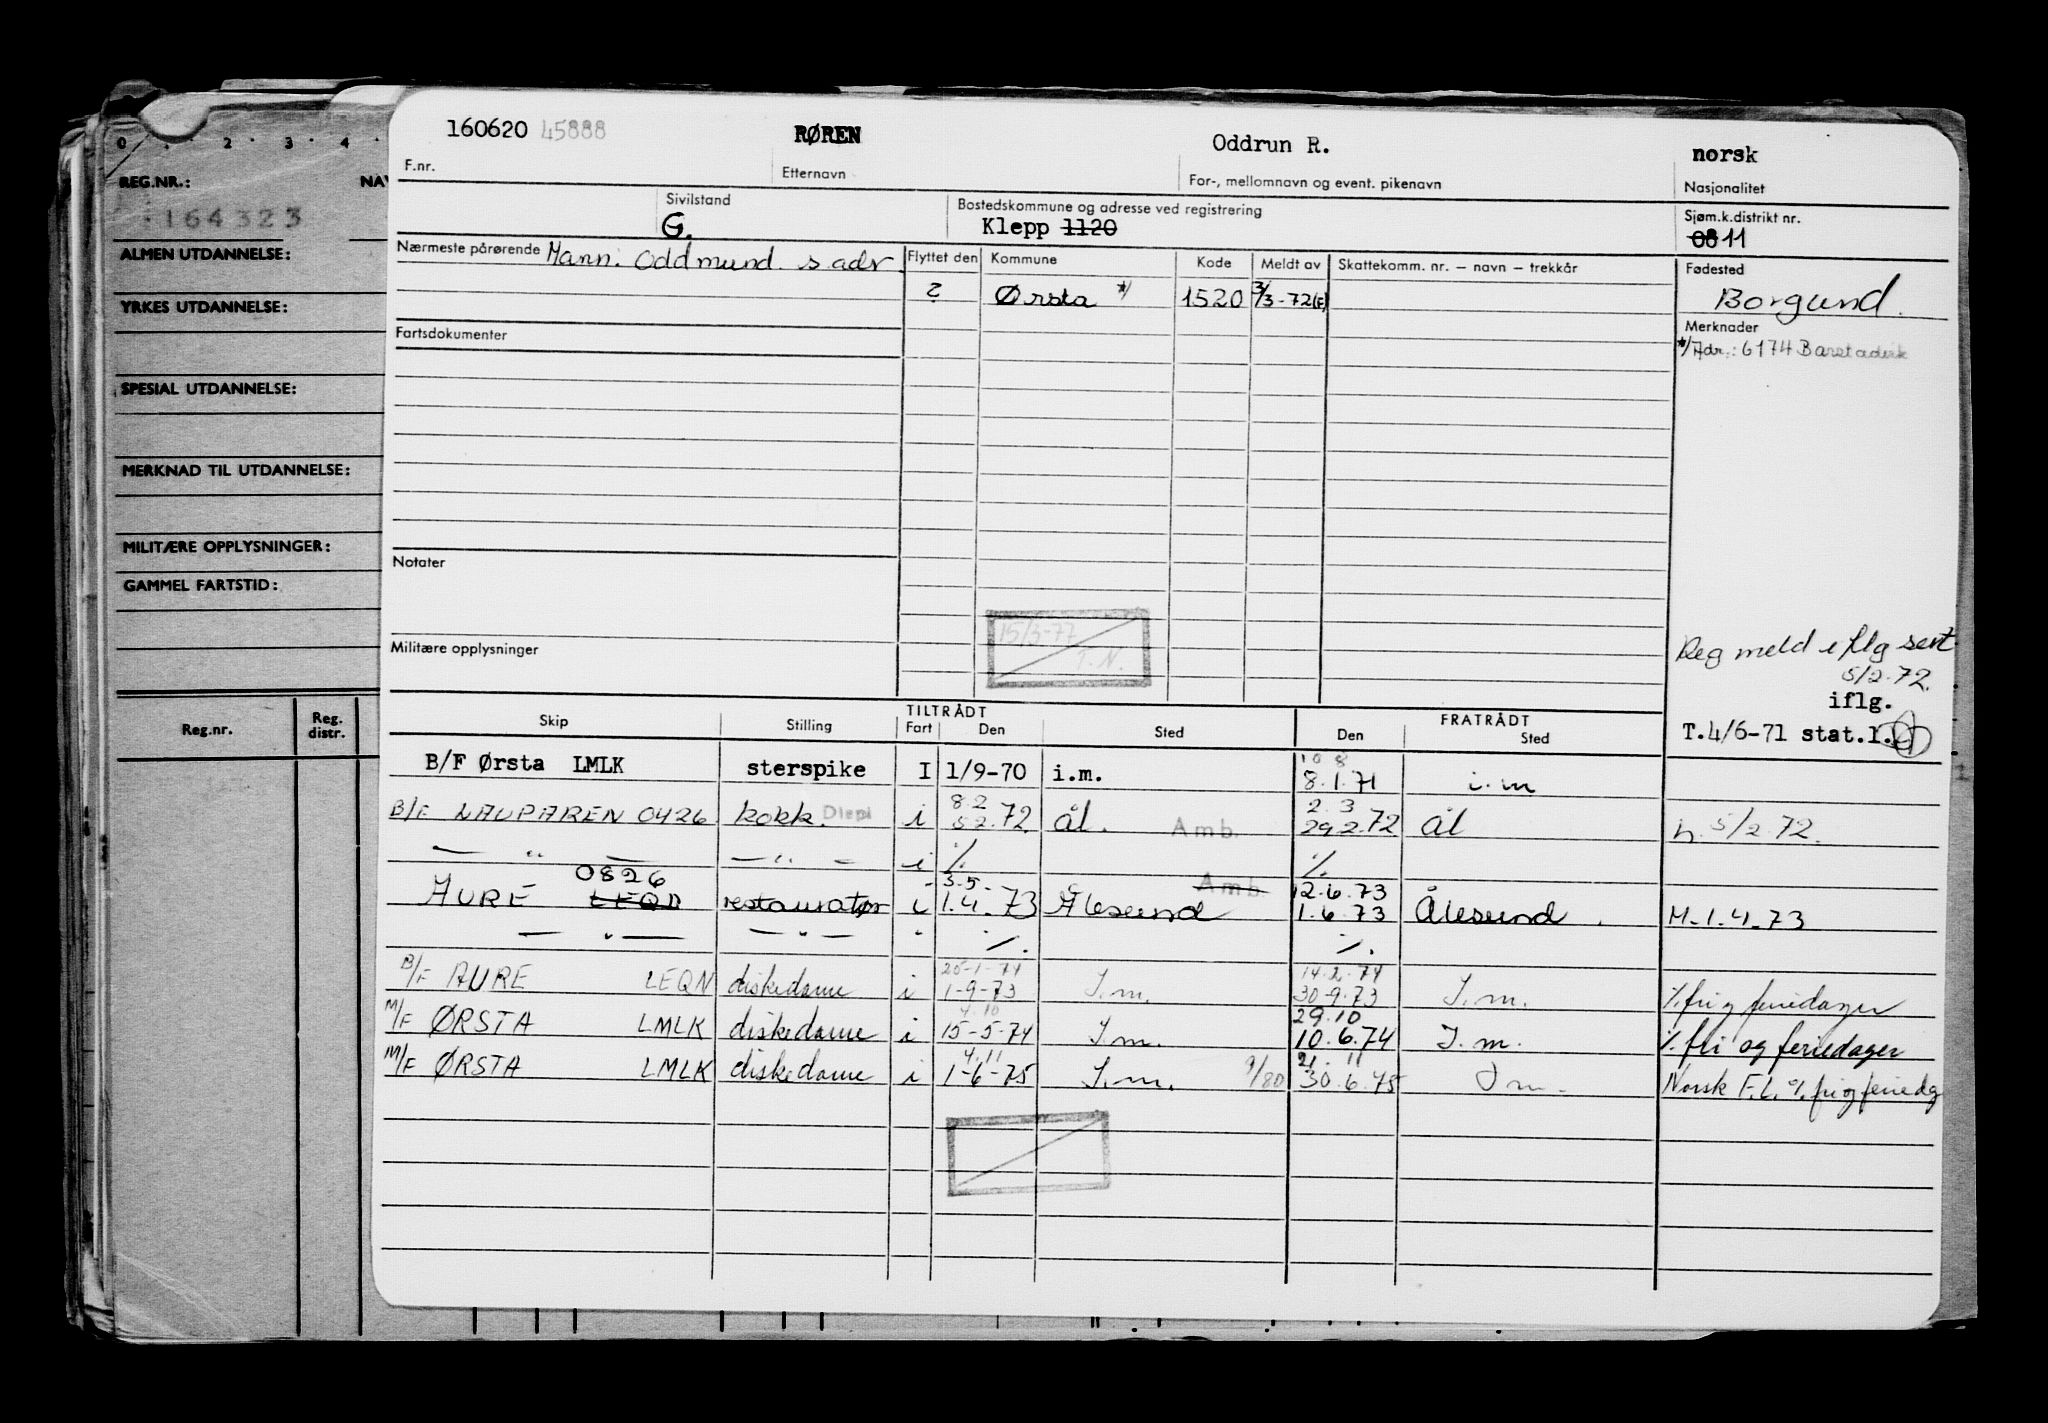 0 . 2 . 3 . 4 .
REG.NR.: NAV
164323
ALMEN UTDANNELSE:
YRKES UTDANNELSE:
SPESIAL UTDANNELSE:
MERKNAD TIL UTDANNELSE:
MILITÆRE OPPLYSNINGER:
GAMMEL FARTSTID:
Reg.nr. Reg. distr.
160620 45888 RØREN Oddrun R. norsk
F.nr. Etternavn For-, mellomnavn og event. pikenavn Nasjonalitet
Sivilstand Bostedskommune og adresse ved registrering Sjøm.k.distrikt nr.
G. Klepp 1120 08 11
Nærmeste pårørende Mann: Oddmund s. adr. Flyttet den Kommune Kode Meldt av Skattekomm. nr. — navn — trekkår Fødested
? Ørsta *) 1520 3/3-72(E) Borgund.
Fartsdokumenter Merknader
*/Adr.: 6174 Barstadvik
Notater
15/3-77
T.N.
Militære opplysninger
Reg meld iflg sert
5/2.72.
iflg.
T.4/6-71 stat.l.
TILTRÅDT FRATRÅDT
Skip Stilling Fart Den Sted Den Sted
10 8
B/F Ørsta LMLK sterspike I 1/9-70 i.m. 8.1.71 i.m
8.2 2.3
B/F LAUPAREN 0426 kokk. i 5 2.72. Ål. Amb. 29 2.72 Ål h. 5/2.72.
— " — — " — i %. %.
0826 3.5. Amb. 12.6.73
AURE LEQN restauratør i 1.4.73 Ålesund 1.6.73 Ålesund. M-1.4.73
— " — — " — " %. %.
25-1-74 14.2.74
B/F AURE LEQN diskedame i 1-9-73 I.m. 30-9.73 I.m. %. fri og feriedager
4.10 29.10
M/F ØRSTA LMLK diskedame i 15-5-74 I.m. 10.6.74 I.m. %. fri og feriedager
4.11 21.11
M/F ØRSTA LMLK diskedame i 1-6-75 I.m. 9/80 30.6.75 I m. Norsk F.L. %. fri og feriedg